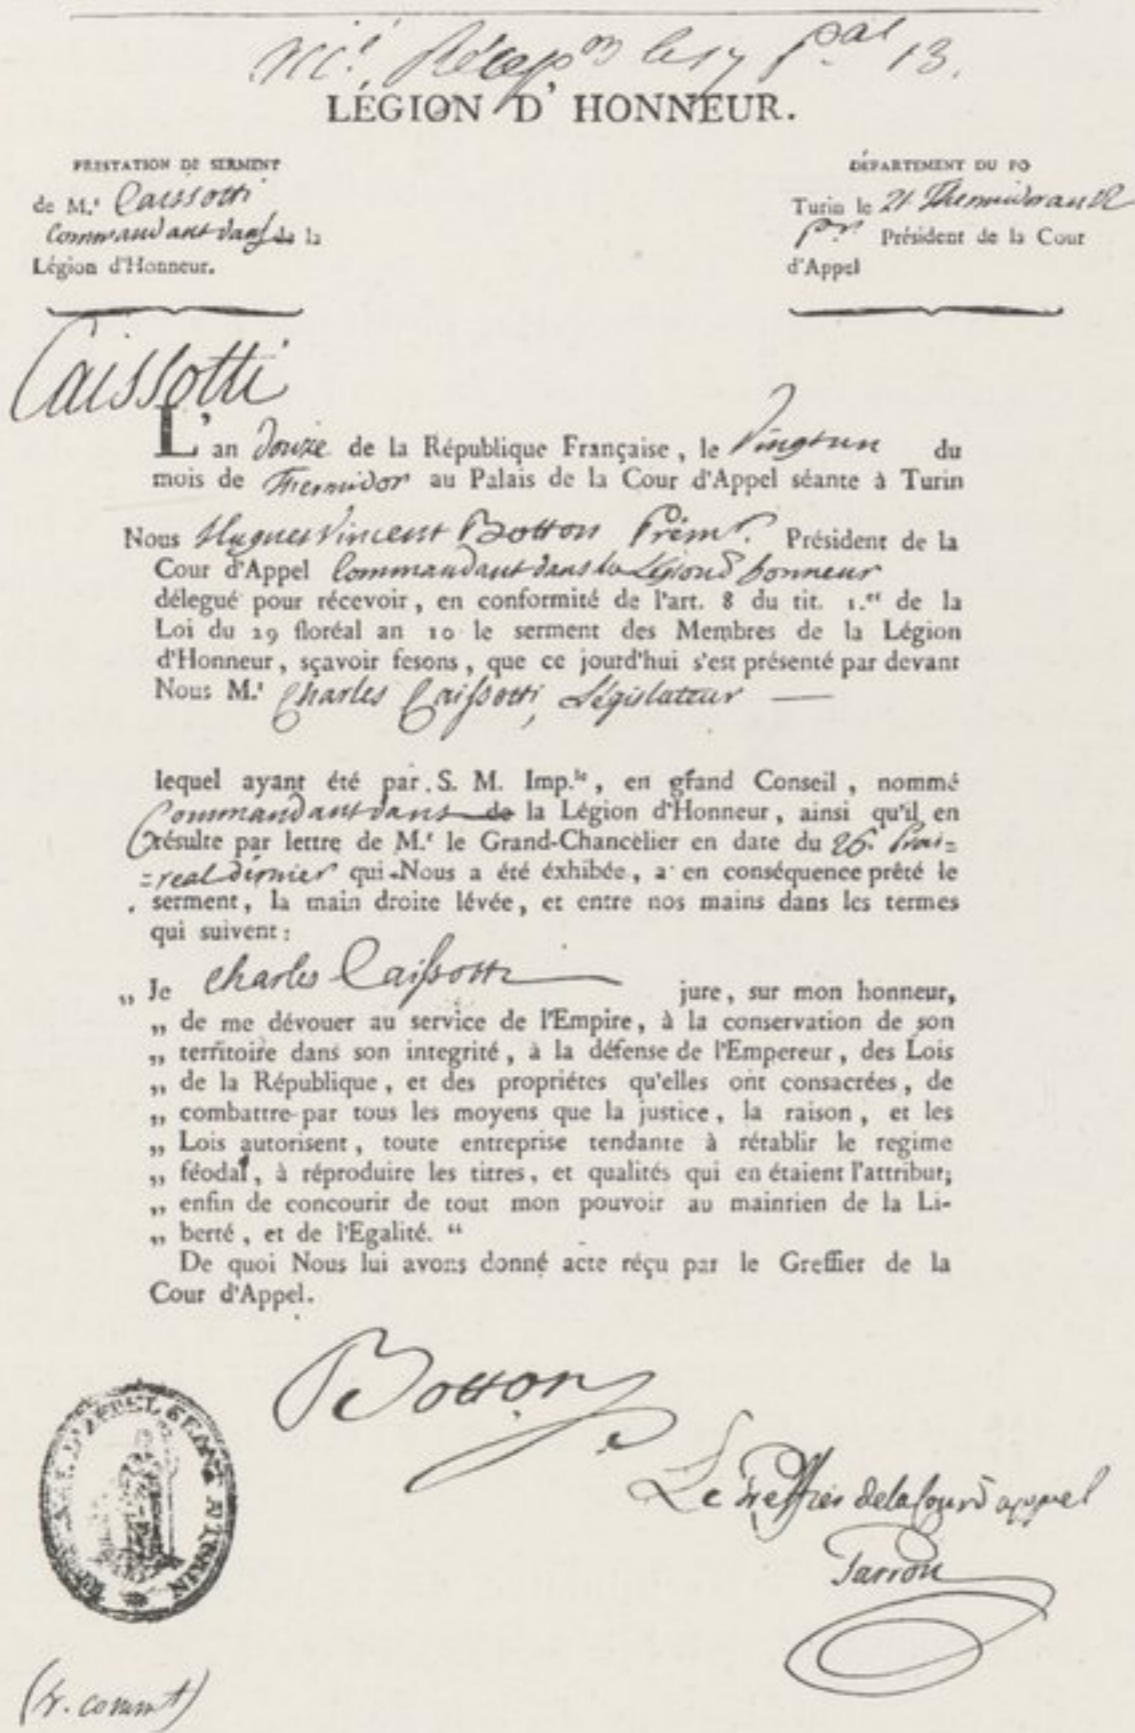 LÉGION D'HONNEUR.
PRESTATION DE SERMENT
de M.r Caissotti
Commandant dans de la
Légion d'Honneur.
DÉPARTEMENT DU PO
Turin le 21 Thermidor an 12
pr. Président de la Cour
d'Appel
Caissotti
L'an douze de la République Française, le Vingtun du
mois de Thermidor au Palais de la Cour d'Appel séante à Turin
Nous Hugues Vincent Botton Prémr. Président de la
Cour d'Appel Commandant dans la Légion d'honneur
délegué pour récevoir, en conformité de l'art. 8 du tit. 1.er de la
Loi du 29 floréal an 10 le serment des Membres de la Légion
d'Honneur, sçavoir fesons, que ce jourd'hui s'est présenté par devant
Nous M.r Charles Caissotti, Législateur —
lequel ayant été par S. M. Imp.le, en grand Conseil, nommé
Commandant dans de la Légion d'Honneur, ainsi qu'il en
résulte par lettre de M.r le Grand-Chancèlier en date du 26. Prai=
=real dernier qui Nous a été éxhibée, a en conséquence prêté le
serment, la main droite lévée, et entre nos mains dans les termes
qui suivent:
„ Je Charles Caissotti jure, sur mon honneur,
„ de me dévouer au service de l'Empire, à la conservation de son
„ territoire dans son integrité, à la défense de l'Empereur, des Lois
„ de la République, et des propriétes qu'elles ont consacrées, de
„ combattre par tous les moyens que la justice, la raison, et les
„ Lois autorisent, toute entreprise tendante à rétablir le regime
„ féodal, à réproduire les titres, et qualités qui en étaient l'attribut;
„ enfin de concourir de tout mon pouvoir au maintien de la Li-
„ berté, et de l'Egalité. “
De quoi Nous lui avons donné acte réçu par le Greffier de la
Cour d'Appel.
Botton
Le Greffier de la Cour d'appel
D'APPEL SEANT A TURIN